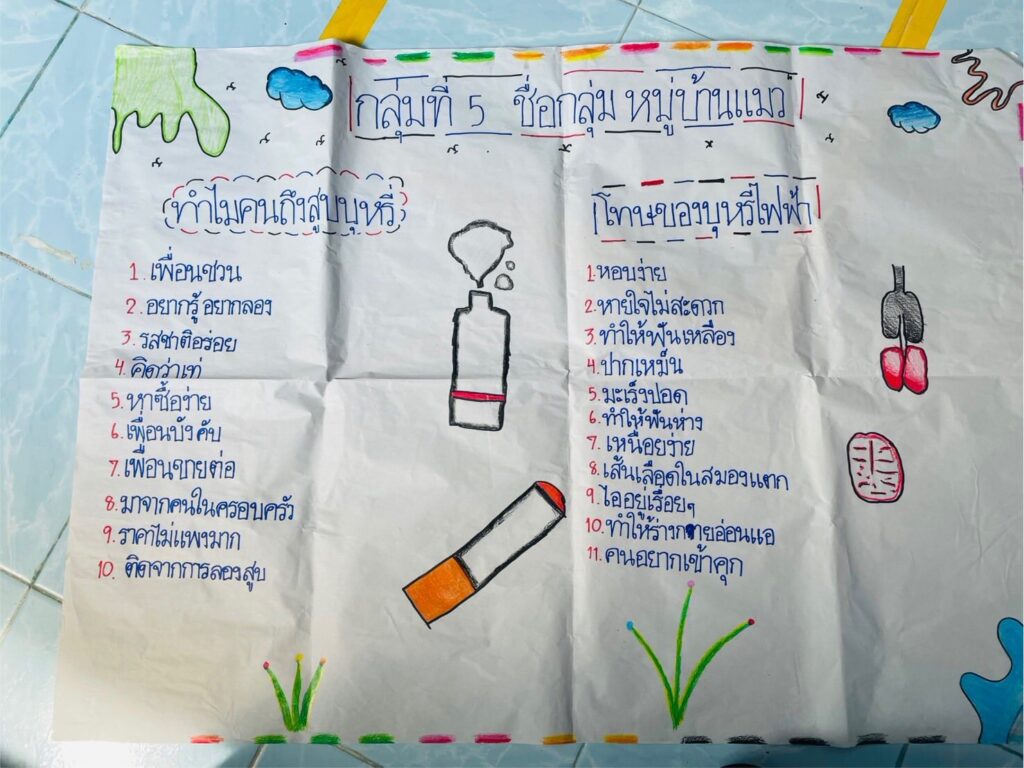 กลุ่มที่ 5 ชื่อกลุ่ม หมู่บ้านแมว
ทำไมคนถึงสูบบุหรี่
1. เพื่อนชวน
2. อยากรู้ อยากลอง
3. รสชาติอร่อย
4. คิดว่าเท่
5. หาซื้อง่าย
6. เพื่อนบังคับ
7. เพื่อนขายต่อ
8. มาจากคนในครอบครัว
9. ราคาไม่แพงมาก
10. ติดจากการลองสูบ
โทษของบุหรี่ไฟฟ้า
1. หอบง่าย
2. หายใจไม่สะดวก
3. ทำให้ฟันเหลือง
4. ปากเหม็น
5. มะเร็งปอด
6. ทำให้ฟันห่าง
7. เหนื่อยง่าย
8. เส้นเลือดในสมองแตก
9. ไออยู่เรื่อยๆ
10. ทำให้ร่างกายอ่อนแอ
11. คนอยากเข้าคุก